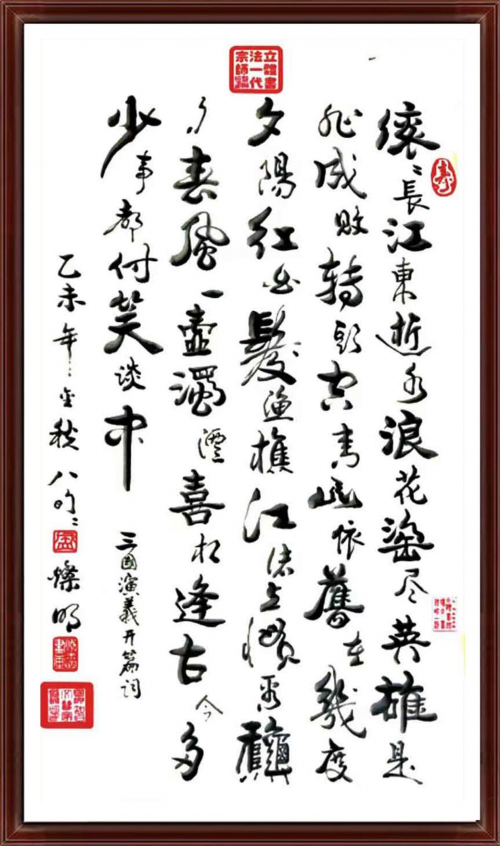 立體書
法一代
宗師
壽
滚〻長江東逝水浪花尽英雄是
非成败轉頭空青山依舊在幾度
夕陽紅白髮渔樵江渚上慣看龝
月春風一壺濁酒喜相逢古今多
少事都付笑談中
三國演義开篇词
乙未年金秋八旬
燦明